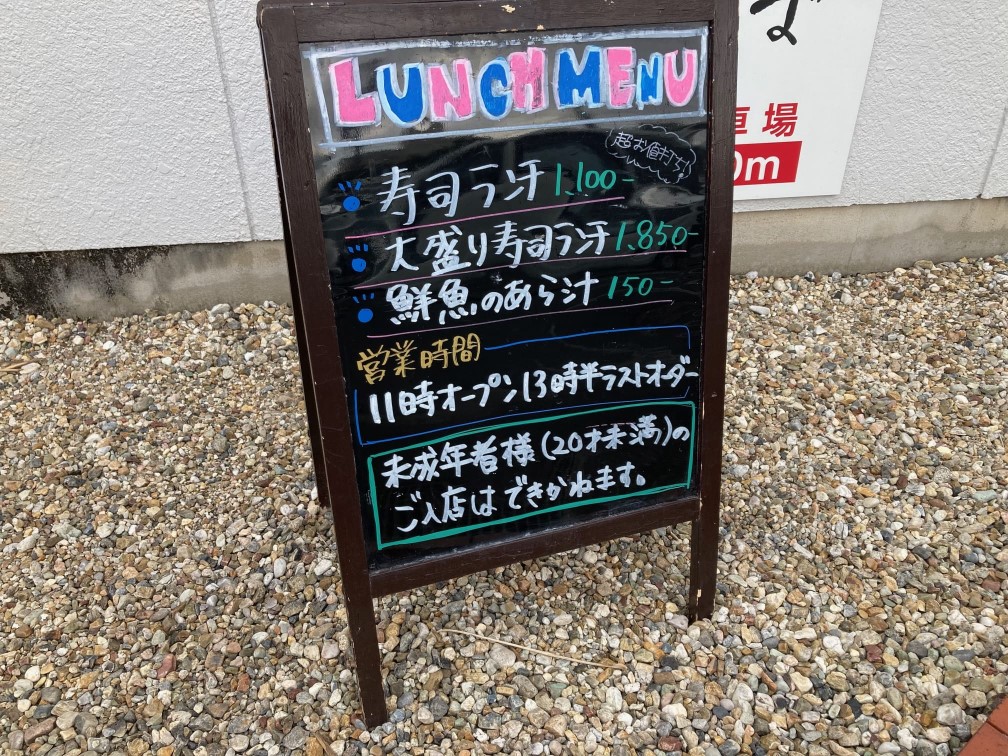 LUNCH MENU
超お値打ち!
寿司ランチ 1,100-
大盛り寿司ランチ 1,850-
鮮魚のあら汁 150-
営業時間
11時オープン13時半ラストオーダー
未成年者様(20才未満)の
ご入店はできかねます。
車場
0m